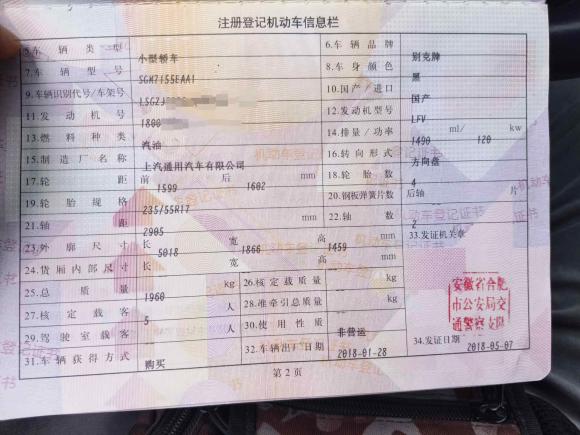 注册登记机动车信息栏
5.车辆类型 小型轿车 6.车辆品牌 别克牌
7.车辆型号 SGM7155EAA1 8.车身颜色 黑
9.车辆识别代号/车架号 LSGZJ 10.国产/进口 国产
11.发动机号 1800 12.发动机型号 LFV
13.燃料种类 汽油 14.排量/功率 1490 ml/ 120 kw
15.制造厂名称 上汽通用汽车有限公司 16.转向形式 方向盘
17.轮距 前 1599 后 1602 mm 18.轮胎数 4
19.轮胎规格 235/55R17 20.钢板弹簧片数 后轴 片
21.轴距 2905 mm 22.轴数 2
23.外廓尺寸 长 5018 宽 1866 高 1459 mm 33.发证机关章
24.货厢内部尺寸 长 宽 高 mm
25.总质量 1960 kg 26.核定载质量 kg
27.核定载客 5 人 28.准牵引总质量 kg
29.驾驶室载客 人 30.使用性质 非营运
31.车辆获得方式 购买 32.车辆出厂日期 2018-01-28 34.发证日期 2018-05-07
安徽省合肥
市公安局交
通警察支队
第2页